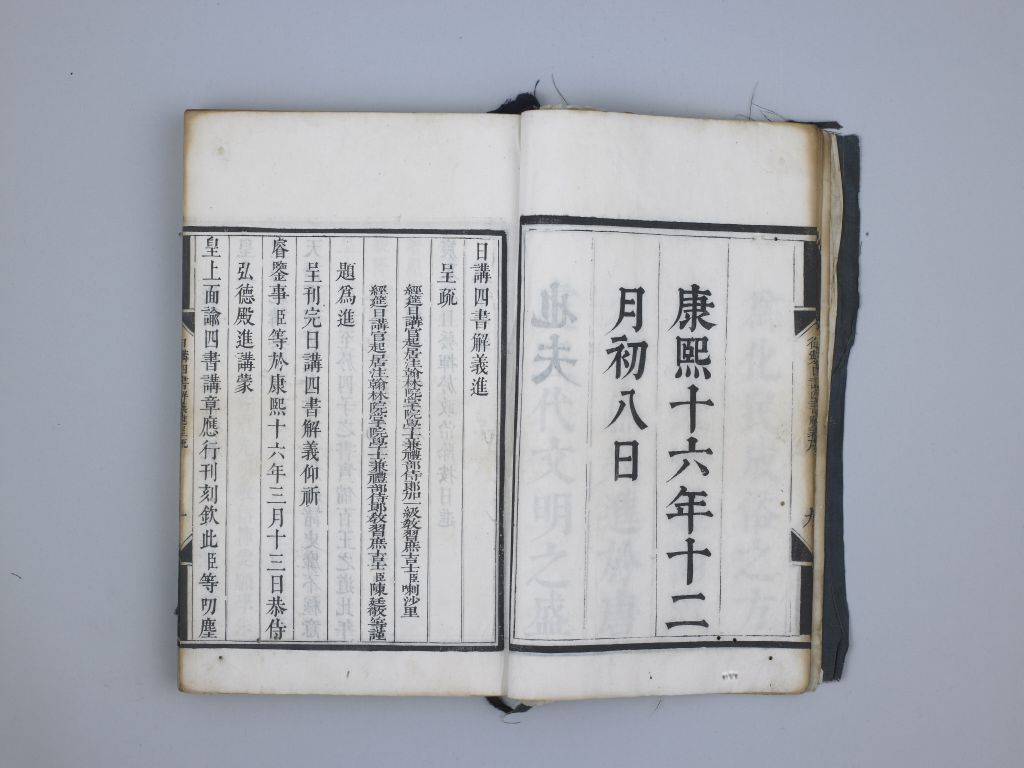 康熙十六年十二
月初八日
日講四書解義進
呈疏
經筵日講官起居注翰林院掌院學士兼禮部侍郎加一級教習庶吉士臣喇沙里
經筵日講官起居注翰林院掌院學士兼禮部侍郎教習庶吉士臣陳廷敬等謹
題為進
呈刊完日講四書解義仰祈
睿鑒事臣等於康熙十六年三月十三日恭侍
弘德殿進講蒙
皇上面諭四書講章應行刊刻欽此臣等叨塵